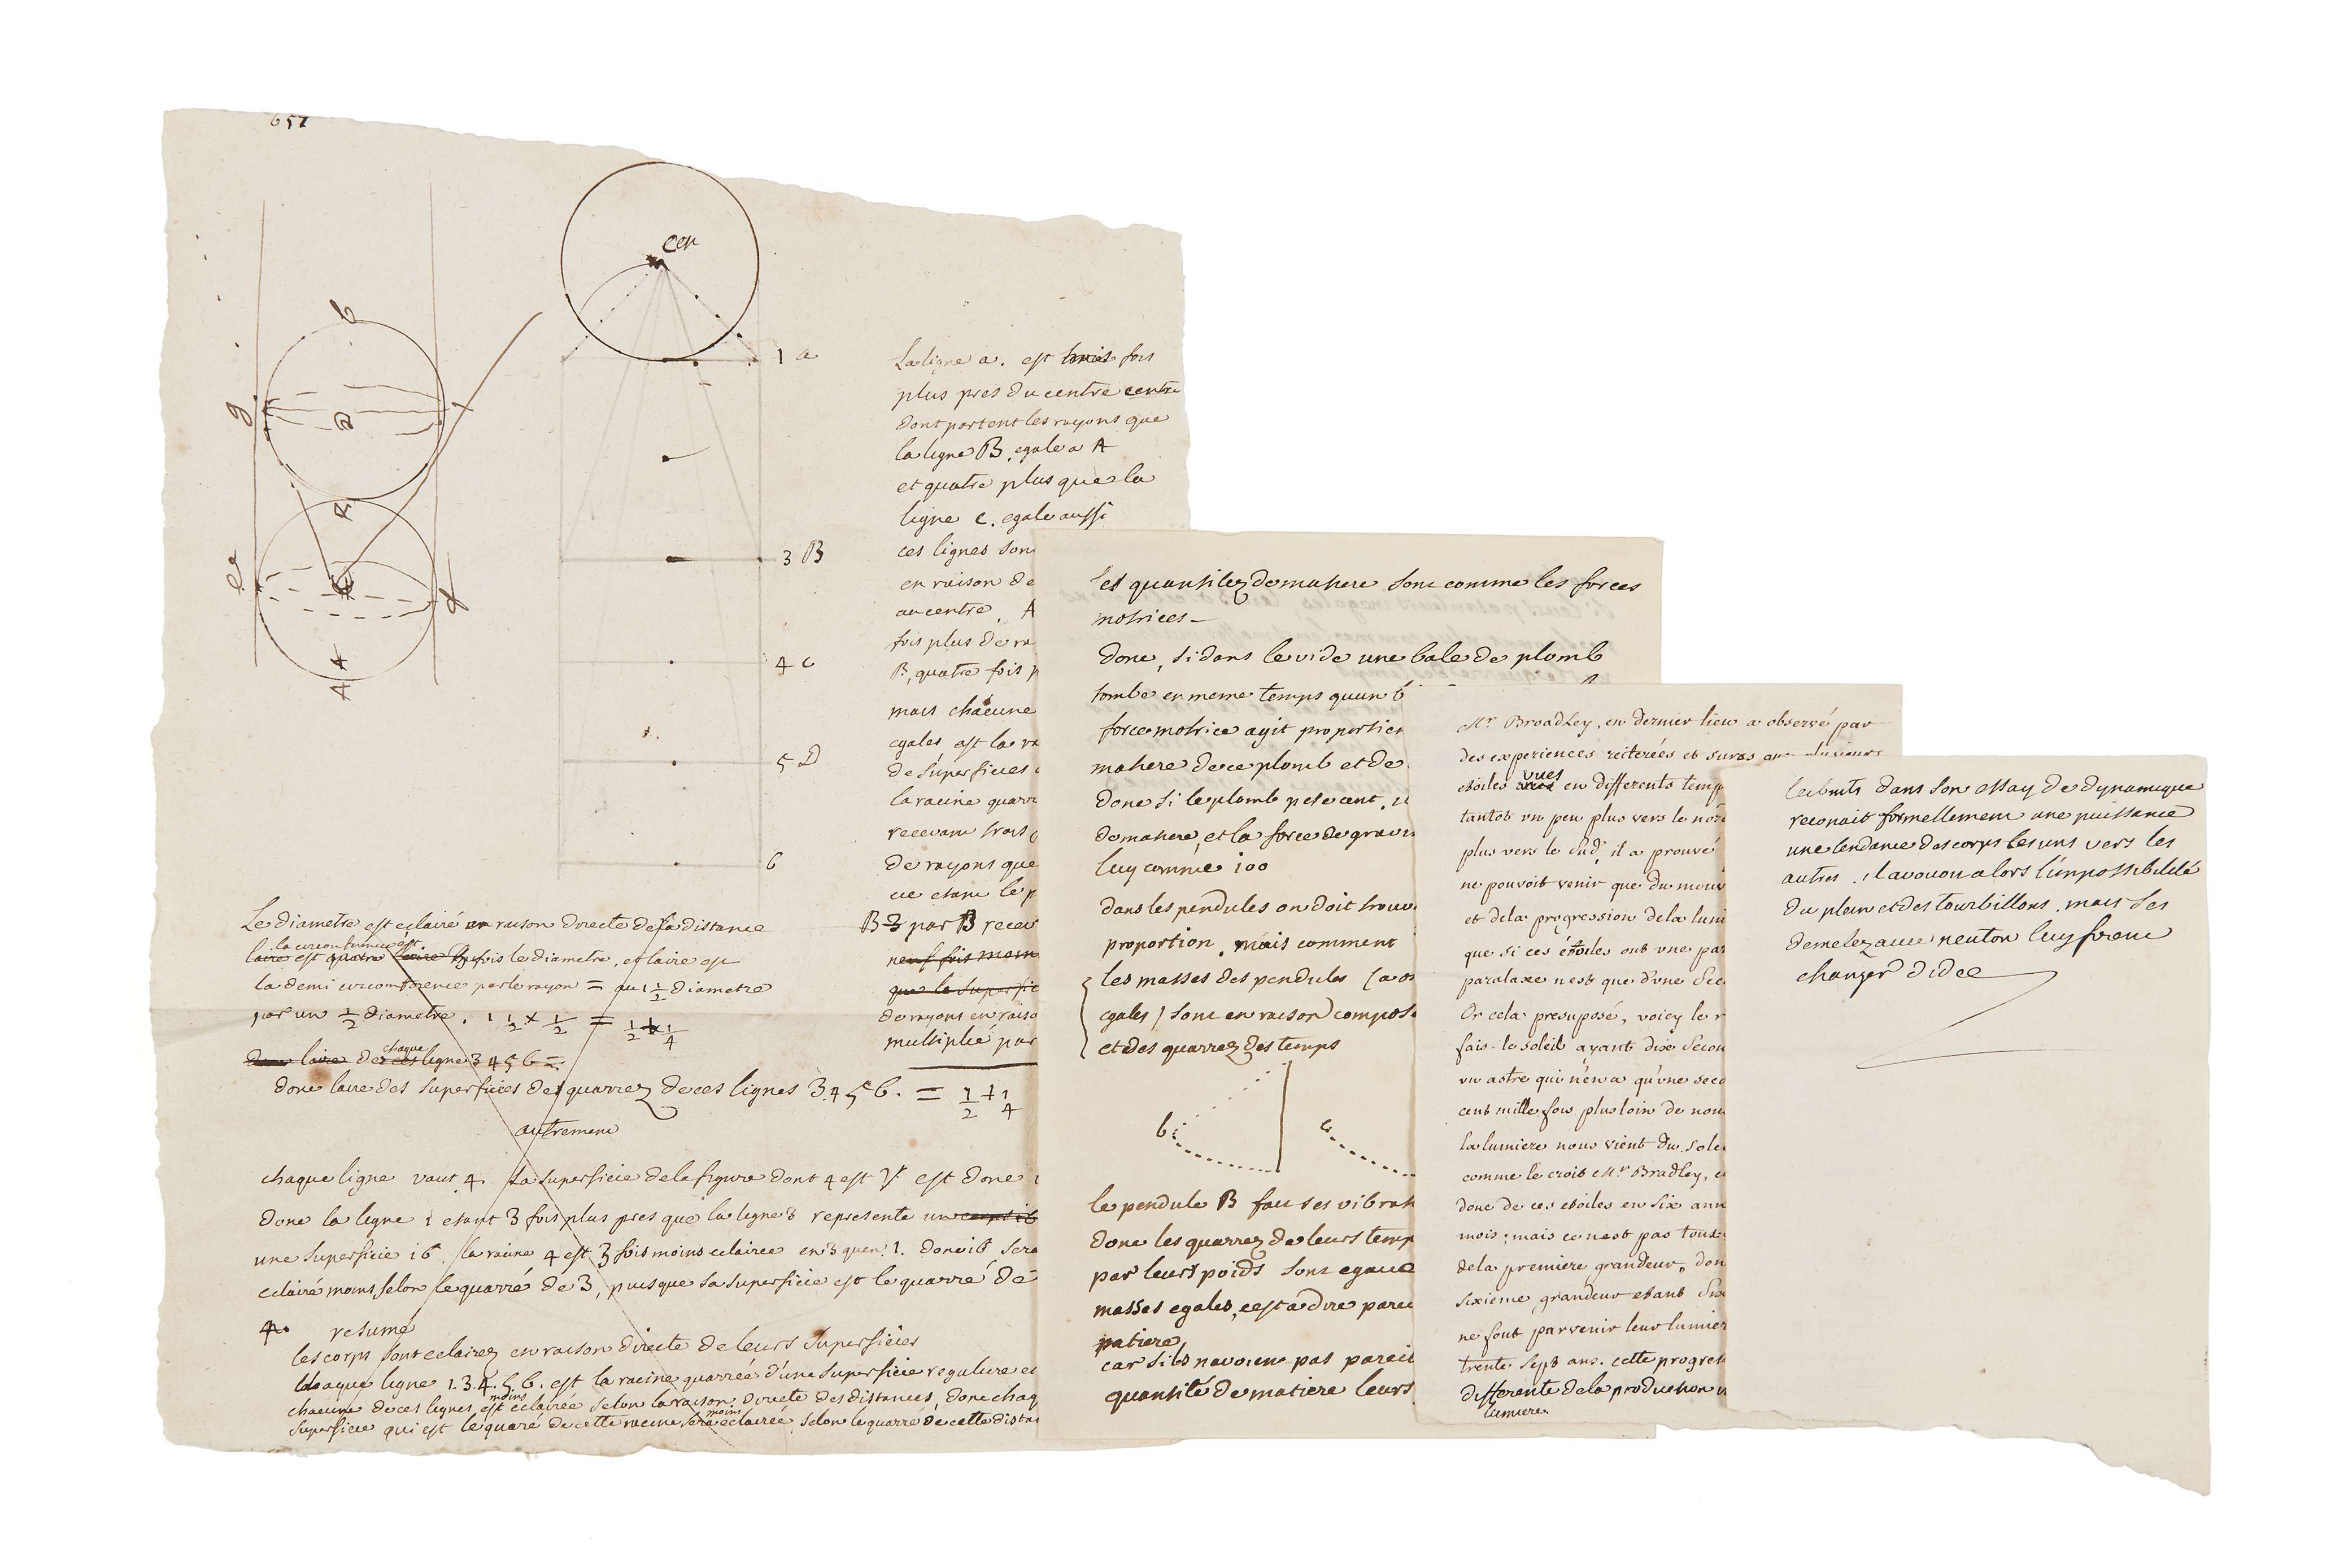 657
cen
b
g
a
f
A
e
d
A
1 a
3 B
4 c
5 D
6
La ligne a. est trois fois
plus pres du centre centre
dont partent les rayons que
la ligne B, egale a A
et quatre plus que la
ligne c. egale aussi
ces lignes son
en raison de
au centre, A
fois plus de ra
B, quatre fois p
mais chacune
egales est la ra
de superficies
la racine quarr
recevant trois
de rayons que
B 3 par B recev
neuf fois moin
que la superfic
de rayons en raiso
multiplié par
Le diametre est eclairé en raison directe de sa distance
la circonference est
laire est quatre fois le diametre, et laire est
la demi circonference par le rayon = au 1 1/2 diametre
par un 1/2 diametre. 1 1/2 × 1/2 = 1/2 + 1/4
chaque
donc laire de ces ligne 3 4 5 6 =
donc laire des superficies des quarrez de ces lignes 3 4 5 6. = 1/2 + 1/4
autrement
chaque ligne vaut 4. La superficie de la figure dont 4 est est donc
donc la ligne 1 etant 3 fois plus pres que la ligne 3 represente un corps 16
une superficie 16. la racine 4 est 3 fois moins eclairee en 3 quen 1. donc 16 sera
eclairé moins selon le quarré de 3, puisque sa superficie est le quarré de
4. resumé
les corps sont eclairez en raison directe de leurs superficies
chaque ligne 1. 3. 4. 5. 6. est la racine quarrée d'une superficie reguliere et
moins
chacune de ces lignes est eclairée selon la raison directe des distances, donc chaq
moins
superficie qui est le quaré de cette racine sera eclairée selon le quarré de cette distan
les quantitez de matiere sont comme les forces
motrices —
donc, si dans le vide une bale de plomb
tombe en meme temps quun
force motrice agit proportion
matiere de ce plomb et de
donc si le plomb pese cent,
de matiere, et la force de gravi
luy comme 100
dans les pendules on doit trouv
proportion. mais comment
les masses des pendules
egales / sont en raison compos
et des quarrez des temps
b
c
le pendule B fait ses vibrat
donc les quarrez de leurs temp
par leurs poids sont egaux
masses egales, cest a dire parei
matiere
car s'ils navoient pas pareil
quantité de matiere leurs
Mr Broadley, en dernier lieu a observé par
des experiences reiterées et sures que plusieurs
vues
etoiles en differents temp
tantot un peu plus vers le nor
plus vers le sud, il a prouvé
ne pouvoit venir que du mouv
et de la progression de la lumi
que si ces étoiles ont une par
paralaxe n'est que d'une sec
Or cela presuposé, voicy le r
fais. le soleil ayant dix secon
un astre qui n'en a qu'une seco
cent mille fois plus loin de nou
la lumiere nous vient du solei
comme le croit Mr Bradley, e
donc de ces etoiles en six ann
mois; mais ce n'est pas tout
de la premiere grandeur, don
sixieme grandeur etant six
ne font parvenir leur lumier
trente-sept ans. cette progres
differente de la production
lumiere.
leibnits dans son essay de dynamique
reconait formellement une puissance
une tendance des corps les uns vers les
autres. il avouoit alors l'impossibilité
du plein et des tourbillons. mais ses
demelez avec neuton luy firent
changer didee